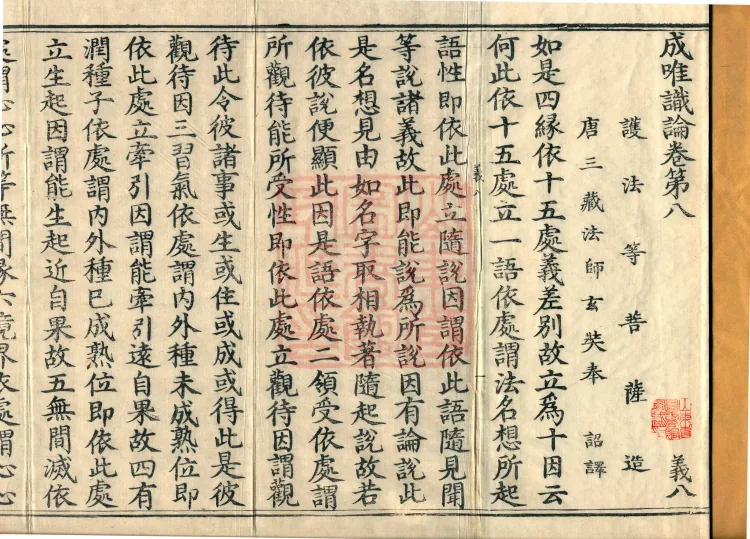 成唯識論卷第八 義八
護法等菩薩造
唐三藏法師玄奘奉 詔譯
如是四緣依十五處義差別故立爲十因云
何此依十五處立一語依處謂法名想所起
語性即依此處立隨說因謂依此語隨見聞
義八
等說諸義故此即能說爲所說因有論說此
是名想見由如名字取相執著隨起說故若
依彼說便顯此因是語依處二領受依處謂
所觀待能所受性即依此處立觀待因謂觀
待此令彼諸事或生或住或成或得此是彼
觀待因三習氣依處謂內外種未成熟位即
依此處立牽引因謂能牽引遠自果故四有
潤種子依處謂內外種已成熟位即依此處
立生起因謂能生起近自果故五無間滅依
處謂心心所等無間緣六境界依處謂心心